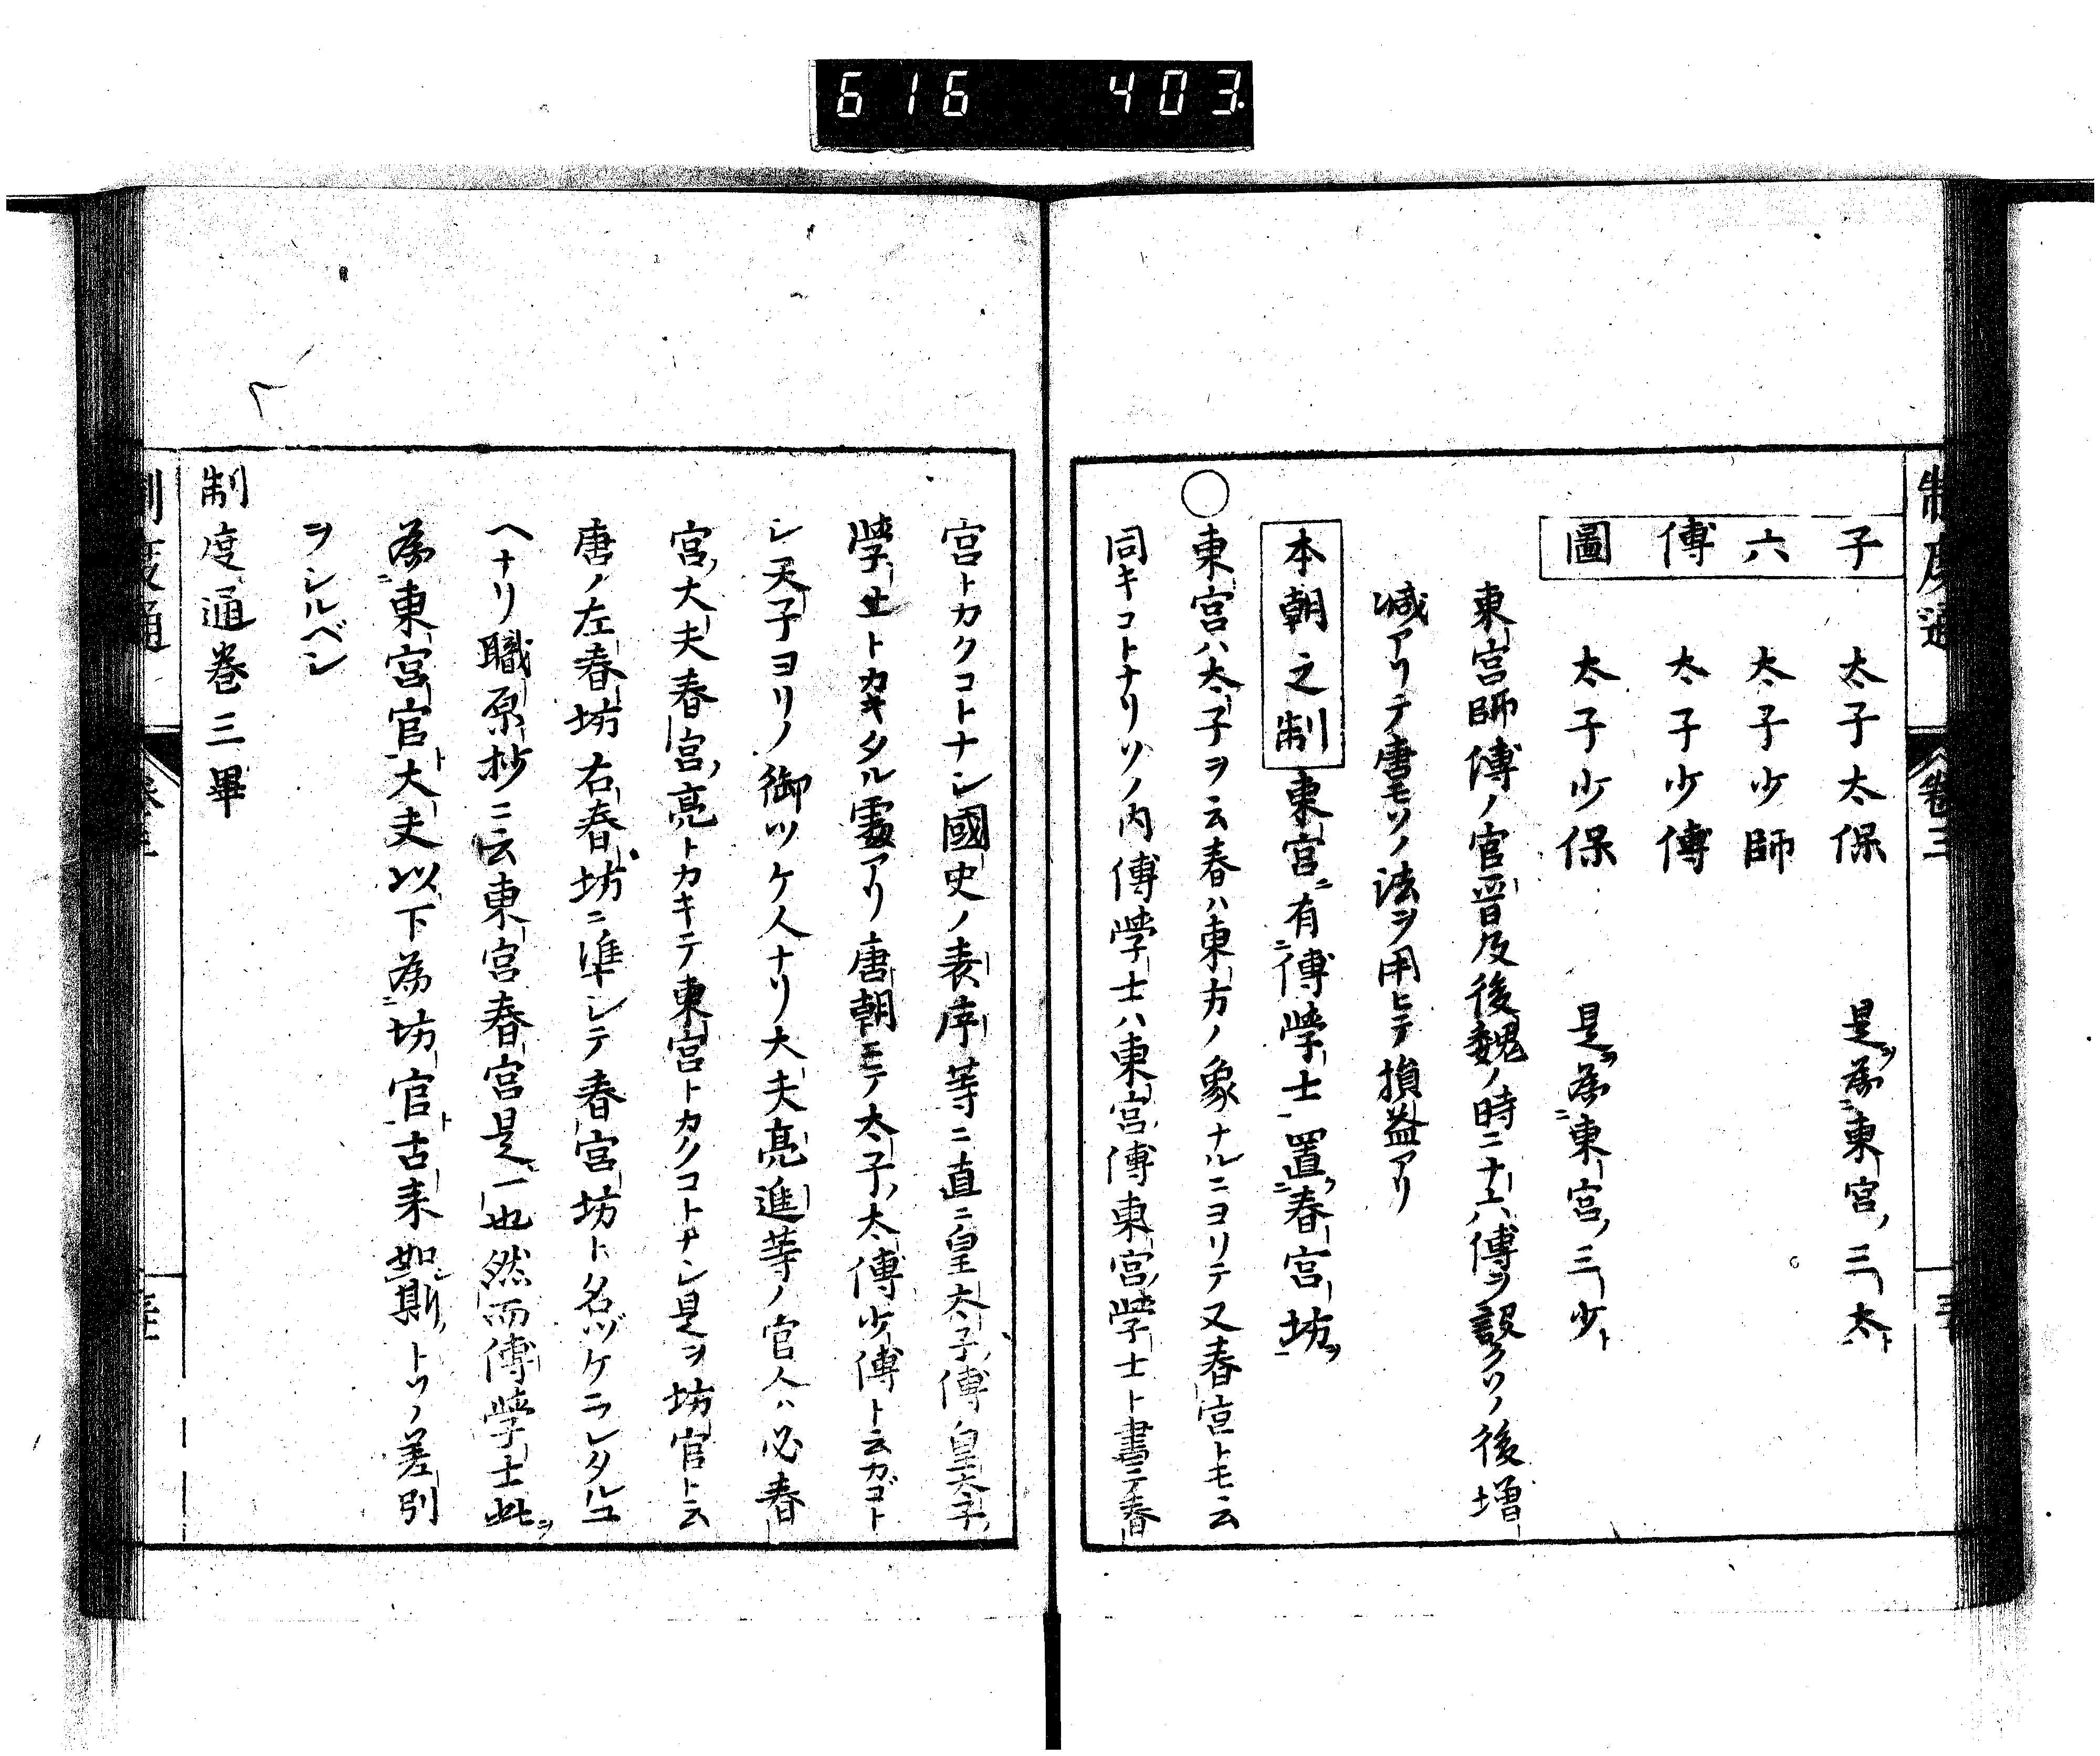 616 403
制度通 卷三
子 太子太保 是ヲ為ニ東宮ノ三太ト
六 太子少師
傅 太子少傅
圖 太子少保 是ヲ為ニ東宮ノ三少ト
東宮師傅ノ官晋及後魏ノ時ニ十六傅ヲ設クソノ後増
減アリテ唐モソノ法ヲ用ヒテ損益アリ
本朝之制 東宮ニ有ニ傅學士一置ニ春宮坊ヲ一
○東宮ハ太子ヲ云春ハ東方ノ象ナルニヨリテ又春宮トモ云
同キコトナリソノ内傅學士ハ東宮傅東宮學士ト書テ春
宮トカクコトナシ國史ノ表序等ニ直ニ皇太子傅皇太子ノ
學士トカキタル處アリ唐朝ニテ太子ノ太傅少傅ト云ガゴト
シ天子ヨリノ御ツケ人ナリ大夫亮進等ノ官人ハ必春
宮ノ大夫春宮ノ亮トカキテ東宮トカクコトナシ是ヲ坊官ト云
唐ノ左春坊右春坊ニ準シテ春宮坊ト名ヅケラレタルユ
ヘナリ職原抄ニ云東宮春宮是一也然而傅學士此ヲ
為ニ東宮官ト一大夫以下為ニ坊官ト一古来如レ斯トソノ差別
ヲシルベシ
制度通卷三畢
制度通